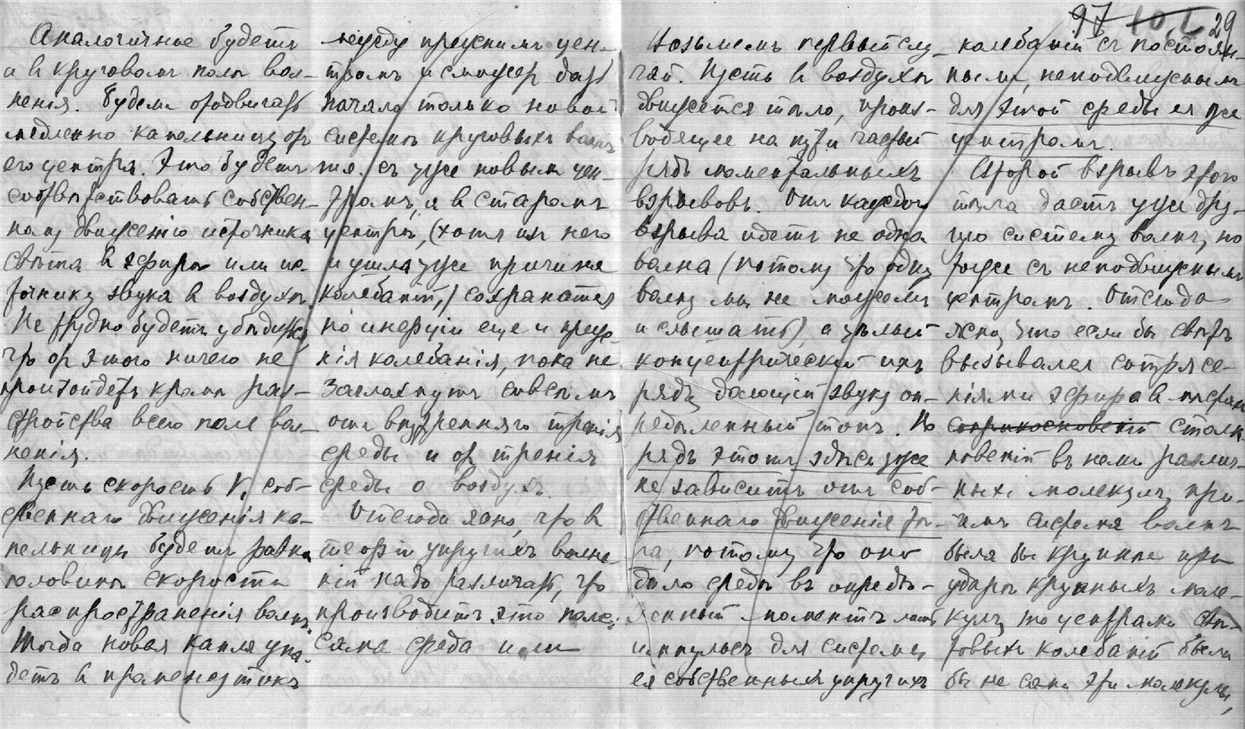 97 10. I. 29
Аналогичное будетъ
и въ круговомъ полѣ вол-
ненія. Будемъ отодвигать
медленно капельницу отъ
его центра. Это будетъ
соотвѣтствовать собствен-
ному движенію источника
свѣта въ эфирѣ или ис-
точнику звука въ воздухѣ.
Не трудно будетъ убѣдиться,
что отъ этого ничего не
произойдетъ кромѣ раз-
стройства всего поля вол-
ненія.
Пусть скорость V, соб-
ственнаго движенія ка-
пельницы будетъ равна
половинѣ скорости
распространенія волнъ.
Тогда новая капля упа-
детъ въ промежуткѣ
между прежнимъ цен-
тромъ и дастъ
начало только новой
системѣ круговыхъ волнъ
съ уже новымъ цен-
тромъ, а въ старомъ
центрѣ, (хотя изъ него
и ушла уже причина
колебаній,) сохранятся
по инерціи еще и преж-
нія колебанія, пока не
заглохнутъ совсѣмъ
отъ внутренняго тренія
среды и отъ тренія
среды о воздухъ.
Отсюда ясно, что въ
теоріи упругихъ волне-
ній надо различать, что
производитъ это поле:
сама среда или
Возьмемъ первый слу-
чай. Пусть въ воздухѣ
движется тѣло, произ-
водящее на пути частый
рядъ моментальныхъ
взрывовъ. Отъ каждаго
взрыва идетъ не одна
волна (потому что одну
волну мы не можемъ
и слышать), а цѣлый
концентрическій ихъ
рядъ, дающій звуку оп-
редѣленный тонъ. Но
рядъ этотъ здѣсь уже
не зависитъ отъ соб-
ственнаго движенія тѣ-
ла, потому что оно
дало средѣ въ опредѣ-
ленный моментъ лишь
импульсъ для системы
ея собственныхъ упругихъ
колебаній съ постоян-
нымъ, неподвижнымъ
для этой среды ея же
центромъ.
Второй взрывъ этого
тѣла дастъ уже дру-
гую систему волнъ, но
тоже съ неподвижнымъ
центромъ. Отсюда
ясно, что если бы свѣтъ
вызывался сотрясе-
ніями эфира въ
соприкосновеній столк-
новеній въ немъ различ-
ныхъ молекулъ, при-
чемъ система волнъ
была бы крупнѣе при
ударѣ крупныхъ моле-
кулъ, то центрами
колебаній были
бы не сами эти молекулы,